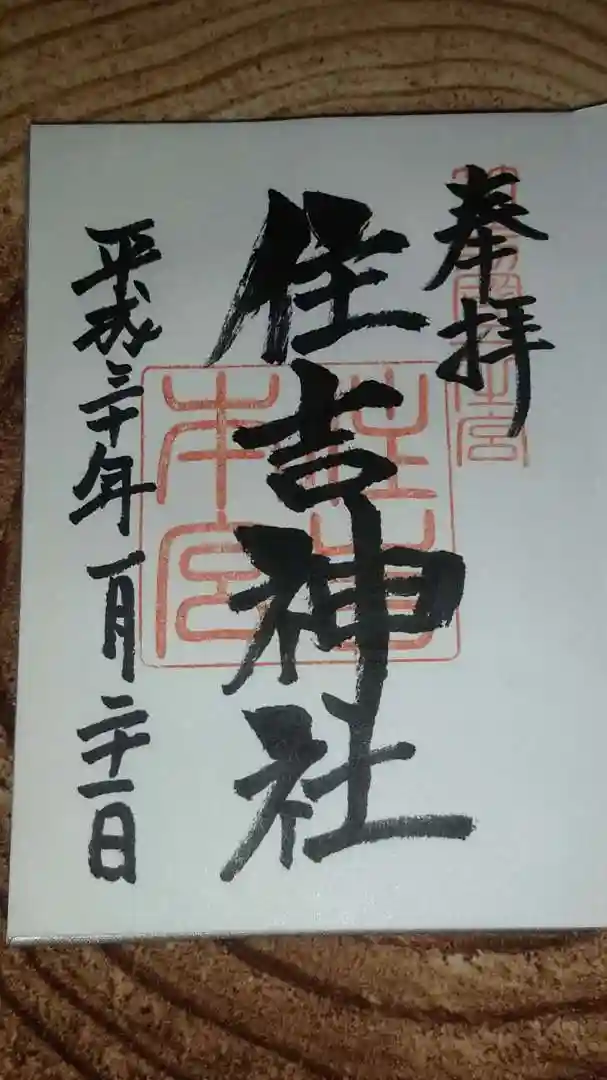 奉拝
住吉神社
住吉本宮
平成三十年一月二十一日